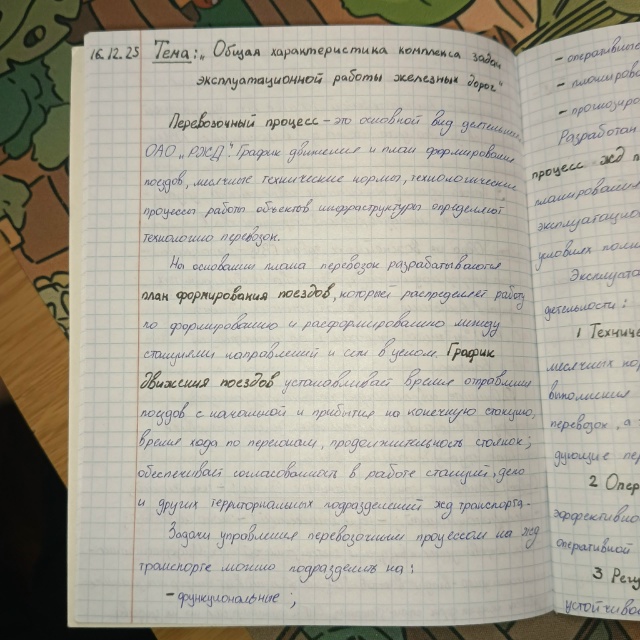 16.12.25 Тема: „Общая характеристика комплекса задач
эксплуатационной работы железных дорог"
Перевозочный процесс – это основной вид деятельн
ОАО „РЖД". График движения и план формирования
поездов, месячные технические нормы, технологические
процессы работы объектов инфраструктуры определяет
технологию перевозок.
На основании плана перевозок разрабатываются
план формирования поездов, который распределяет работу
по формированию и расформированию между
станциями направлений и сети в целом. График
движения поездов устанавливает время отправления
поездов с начальной и прибытия на конечную станцию,
время хода по перегонам, продолжительность стоянок;
обеспечивает согласованность в работе станций, депо
и других территориальных подразделений жд транспорта.
Задачи управления перевозочным процессом на жд
транспорте можно подразделить на:
– функциональные ;
– оперативные
– планирова
– прогнозиро
Разработан
процесс жд п
планирования
эксплуатацио
условиях поли
Эксплуата
деятельности :
1 Техниче
месячных нор
выполнения
перевозок, а
дующие пер
2 Опер
эффективно
оперативной
3 Регу
устойчивое